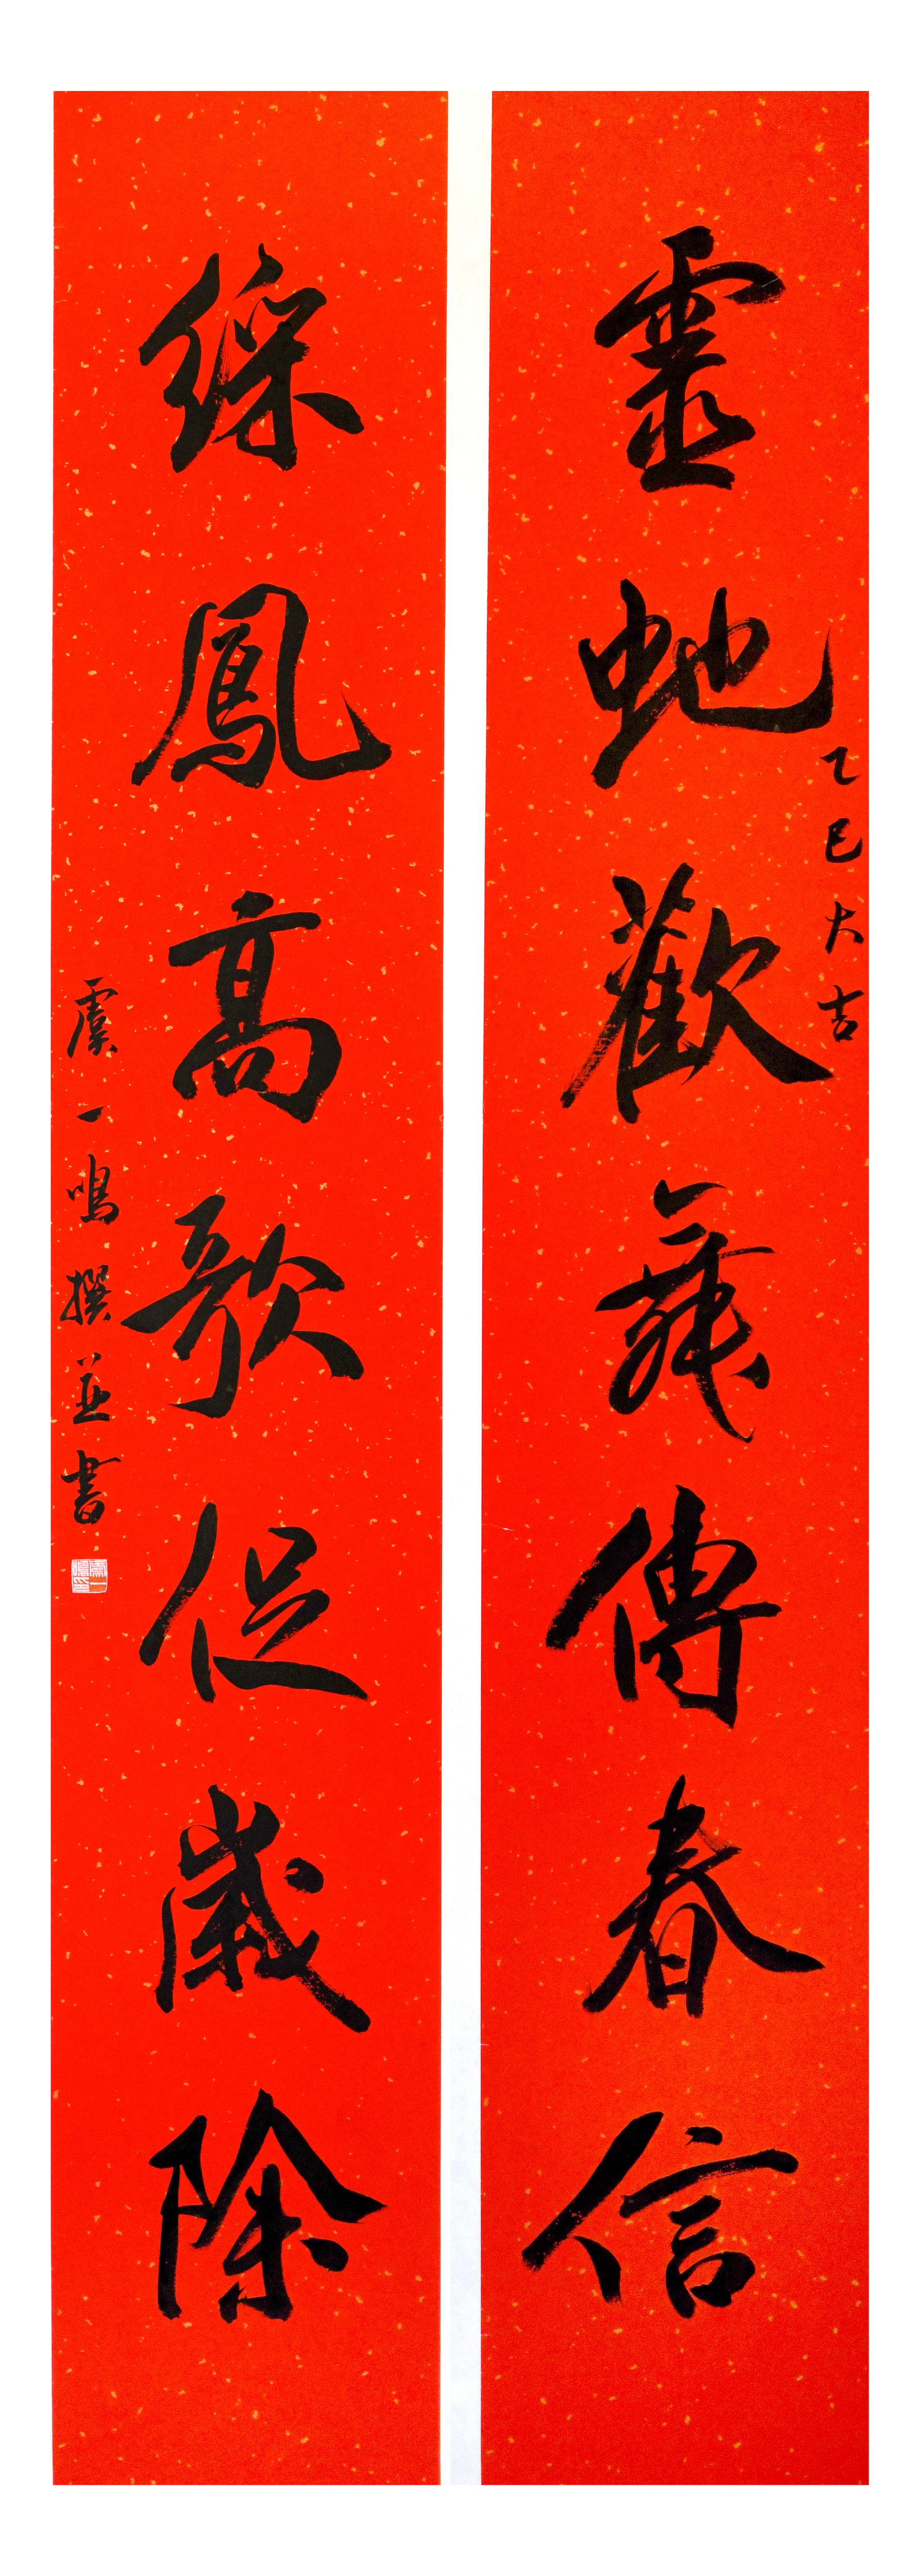 靈蛇歡舞傳春信
乙巳大吉
綵鳳高歌促歲除
虞一鳴撰並書